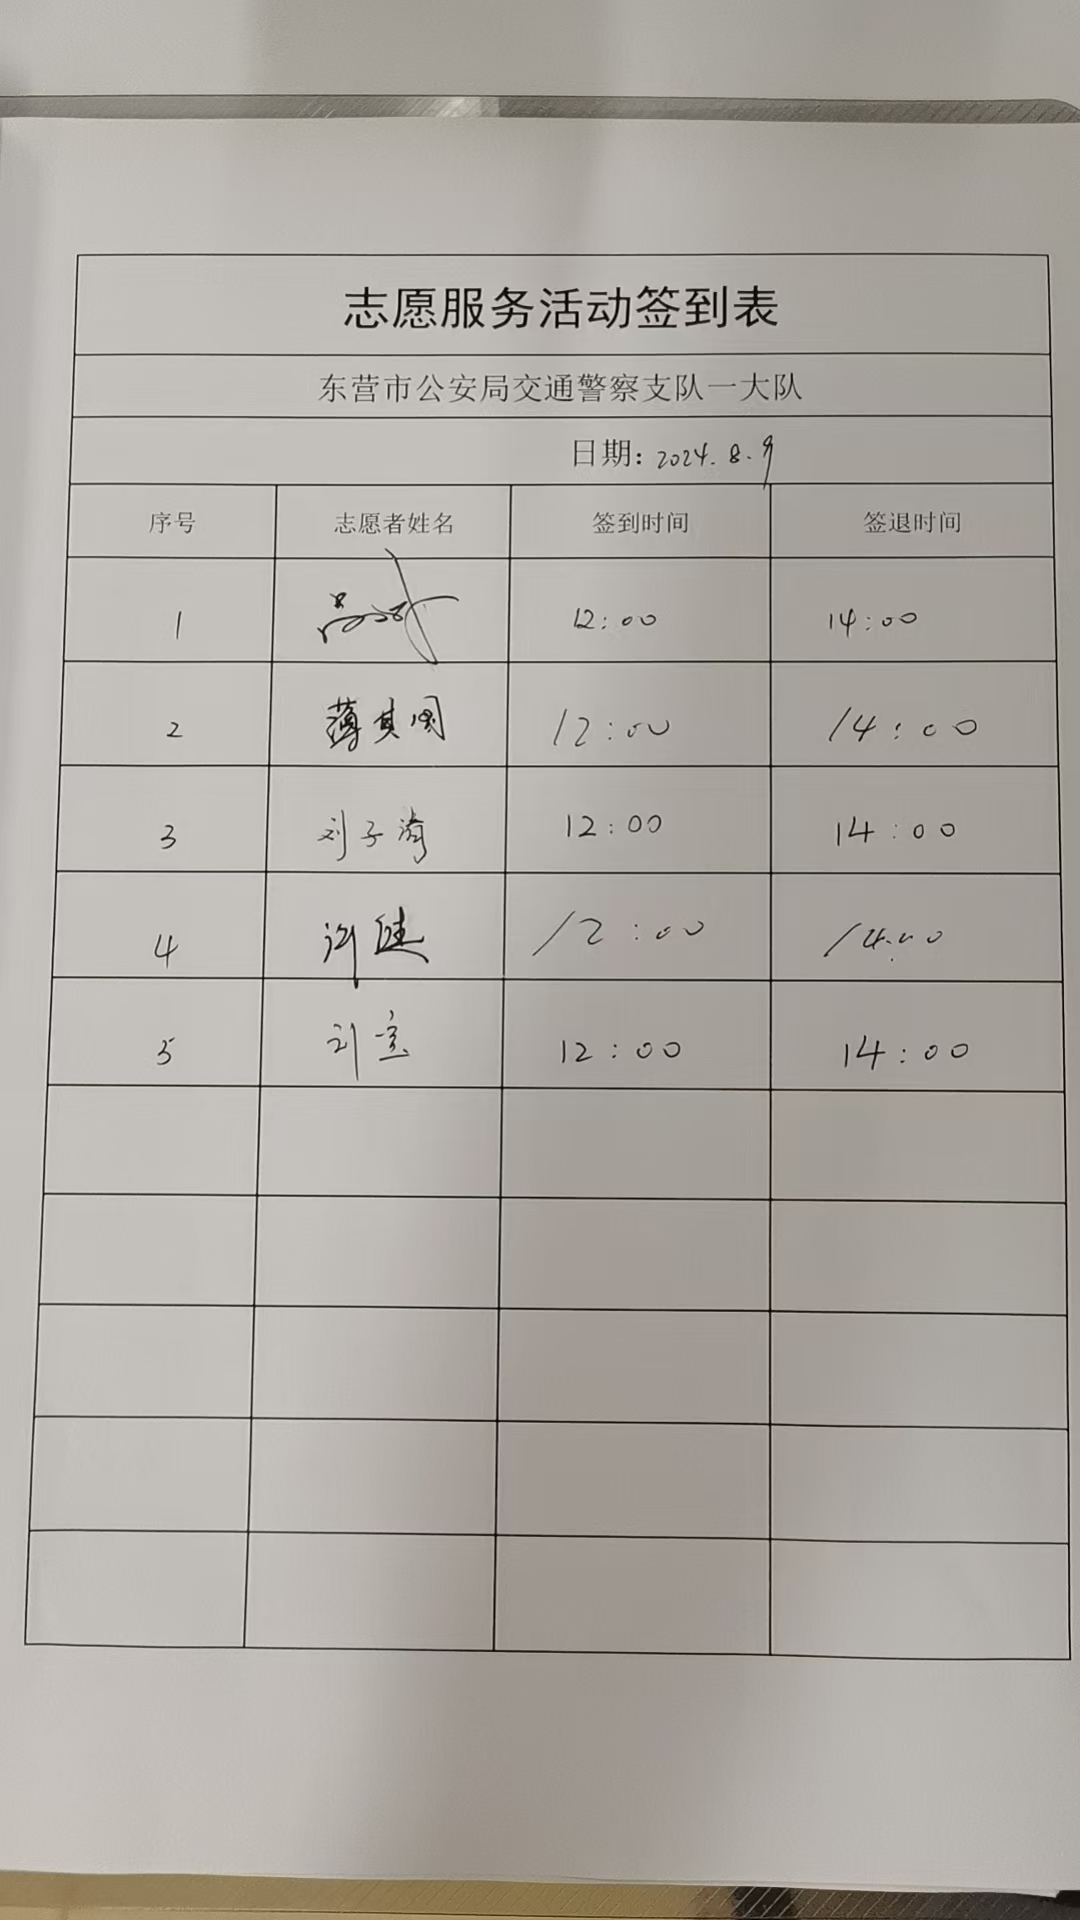 志愿服务活动签到表
东营市公安局交通警察支队一大队
日期: 2024.8.9
序号 志愿者姓名 签到时间 签退时间
1 12:00 14:00
2 薄其国 12:00 14:00
3 刘子 12:00 14:00
4 许健 12:00 14:00
5 刘 12:00 14:00